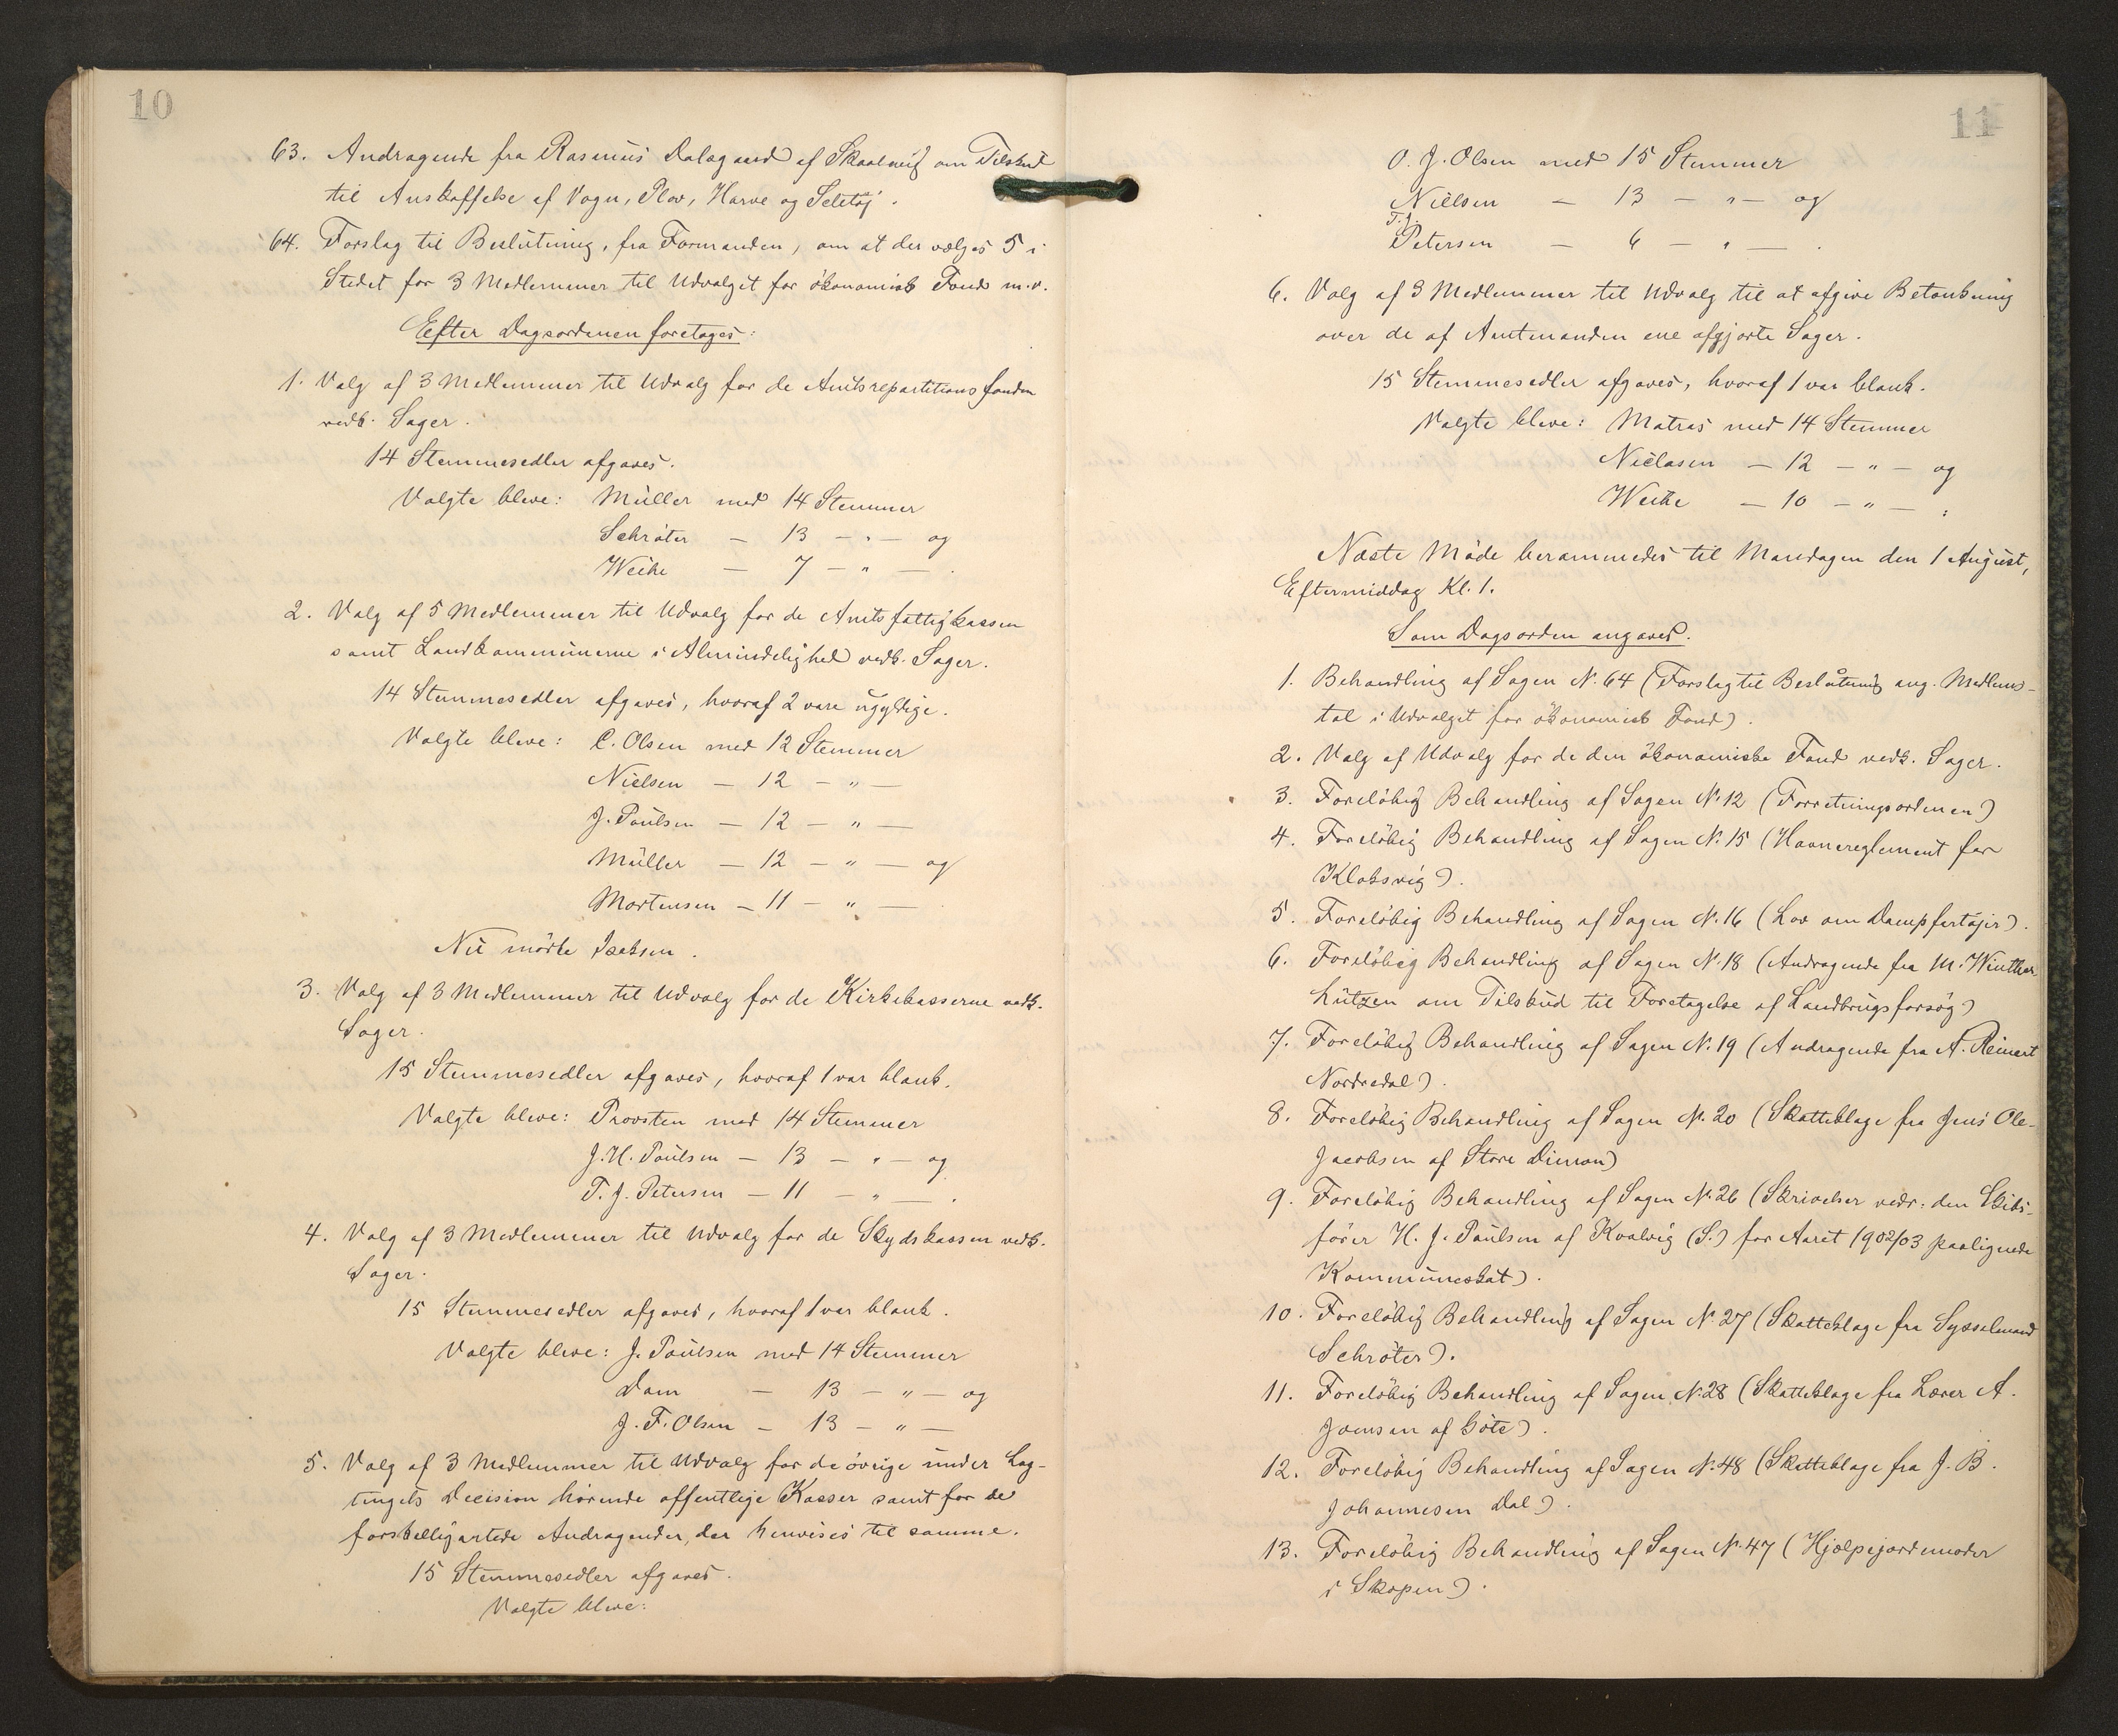 10
63. Andragende fra Rasmus Dalsgaard af Skaalevig om Tilskud
til Anskaffelse af Vogn, Plov, Harve og Seletøj.
64. Forslag til Beslutning, fra Formanden, om at der vælges 5 i
Stedet for 3 Medlemmer til Udvalget for økonomisk Fond m.v.
Efter Dagsordenen foretoges:
1. Valg af 3 Medlemmer til Udvalg for de Amtsrepartitionsfonden
vedk. Sager.
14 Stemmesedler afgaves.
Valgte bleve: Müller med 14 Stemmer
Schrøter — 13 — " — og
Weihe — 7 — " — .
2. Valg af 5 Medlemmer til Udvalg for de Amtsfattigkassen
samt Landkommunerne i Almindelighed vedk. Sager.
14 Stemmesedler afgaves, hvoraf 2 vare ugyldige.
Valgte bleve: C. Olsen med 12 Stemmer
Nielsen — 12 — " —
J. Poulsen — 12 — " —
Müller — 12 — " — og
Mortensen — 11 — " —
Nu mødte Isaksen.
3. Valg af 3 Medlemmer til Udvalg for de Kirkekasserne vedk.
Sager.
15 Stemmesedler afgaves, hvoraf 1 var blank.
Valgte bleve: Provsten med 14 Stemmer
J.H. Poulsen — 13 — " — og
T. J. Petersen — 11 — " — .
4. Valg af 3 Medlemmer til Udvalg for de Skydskassen vedk.
Sager.
15 Stemmesedler afgaves, hvoraf 1 var blank.
Valgte bleve: J. Poulsen med 14 Stemmer
Dam — 13 — " — og
J. F. Olsen — 13 — " —
5. Valg af 3 Medlemmer til Udvalg for de øvrige under Lag-
tingets Decision hørende offentlige Kasser samt for de
forskelligartede Andragender, der henvises til samme.
15 Stemmesedler afgaves.
Valgte bleve:
11
O. J. Olsen med 15 Stemmer
Nielsen — 13 — " — og
T. J.
Petersen — 6 — " — .
6. Valg af 3 Medlemmer til Udvalg til at afgive Betænkning
over de af Amtmanden ene afgjorte Sager.
15 Stemmesedler afgaves, hvoraf 1 var blank.
Valgte bleve: Matras med 14 Stemmer
Niclasen — 12 — " — og
Weihe — 10 — " — .
Næste Møde berammedes til Mandagen den 1 August,
Eftermiddag Kl. 1.
Som Dagsorden angaves.
1. Behandling af Sagen N. 64 (Forslag til Beslutning ang. Medlems-
tal i Udvalget for økonomisk Fond).
2. Valg af Udvalg for de den økonomiske Fond vedk. Sager.
3. Foreløbig Behandling af Sagen N. 12 (Forretningsordenen)
4. Foreløbig Behandling af Sagen N. 15 (Havnereglement for
Klaksvig).
5. Foreløbig Behandling af Sagen N. 16 (Lov om Dampfartøjer).
6. Foreløbig Behandling af Sagen N. 18 (Andragende fra M. Winther
Lützen om Tilskud til Foretagelse af Landbrugsforsøg)
7. Foreløbig Behandling af Sagen N. 19 (Andragende fra A. Reinert
Nordredal).
8. Foreløbig Behandling af Sagen N. 20 (Skatteklage fra Jens Ole-
Jacobsen af Store Dimon)
9. Foreløbig Behandling af Sagen N. 26 (Skrivelser vedr: den Skibs-
fører H. J. Poulsen af Kvalvig (S.) for Aaret 1902/03 paalignede
Kommuneskat).
10. Foreløbig Behandling af Sagen N. 27 (Skatteklage fra Sysselmand
Schrøter).
11. Foreløbig Behandling af Sagen N. 28 (Skatteklage fra Lærer A.
Joensen af Gøte).
12. Foreløbig Behandling af Sagen N. 48 (Skatteklage fra J. B.
Johannesen Dal).
13. Foreløbig Behandling af Sagen N. 47 (Hjælpejordemoder
i Skopen).